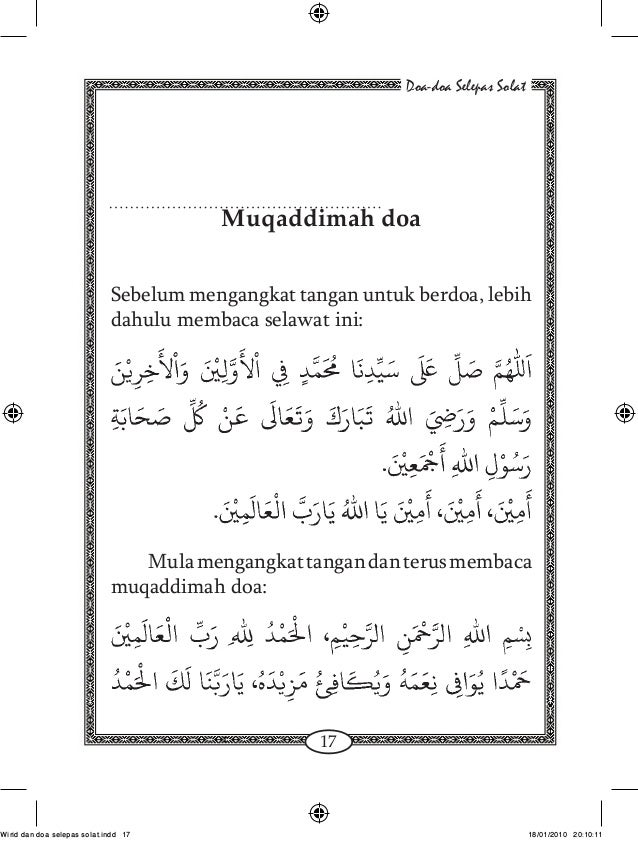 Doa-doa Selepas Solat
Muqaddimah doa
Sebelum mengangkat tangan untuk berdoa, lebih
dahulu membaca selawat ini:
اَللّٰهُمَّ صَلِّ عَلَى سَيِّدِنَا مُحَمَّدٍ فِي الْأَوَّلِيْنَ وَالْأَخِرِيْنَ
وَسَلِّمْ وَرَضِيَ اللهُ تَبَارَكَ وَتَعَالَى عَنْ كُلِّ صَحَابَةِ
رَسُوْلِ اللهِ أَجْمَعِيْنَ.
أَمِيْنَ، أَمِيْنَ، أَمِيْنَ يَا اللهُ يَارَبَّ الْعَالَمِيْنَ.
Mula mengangkat tangan dan terus membaca
muqaddimah doa:
بِسْمِ اللهِ الرَّحْمَنِ الرَّحِيْمِ، الْحَمْدُ لِلهِ رَبِّ الْعَالَمِيْنَ
حَمْدًا يُوَافِى نِعَمَهُ وَيُكَافِئُ مَزِيْدَهُ، يَارَبَّنَا لَكَ الْحَمْدُ
17
Wirid dan doa selepas solat.indd 17
18/01/2010 20:10:11